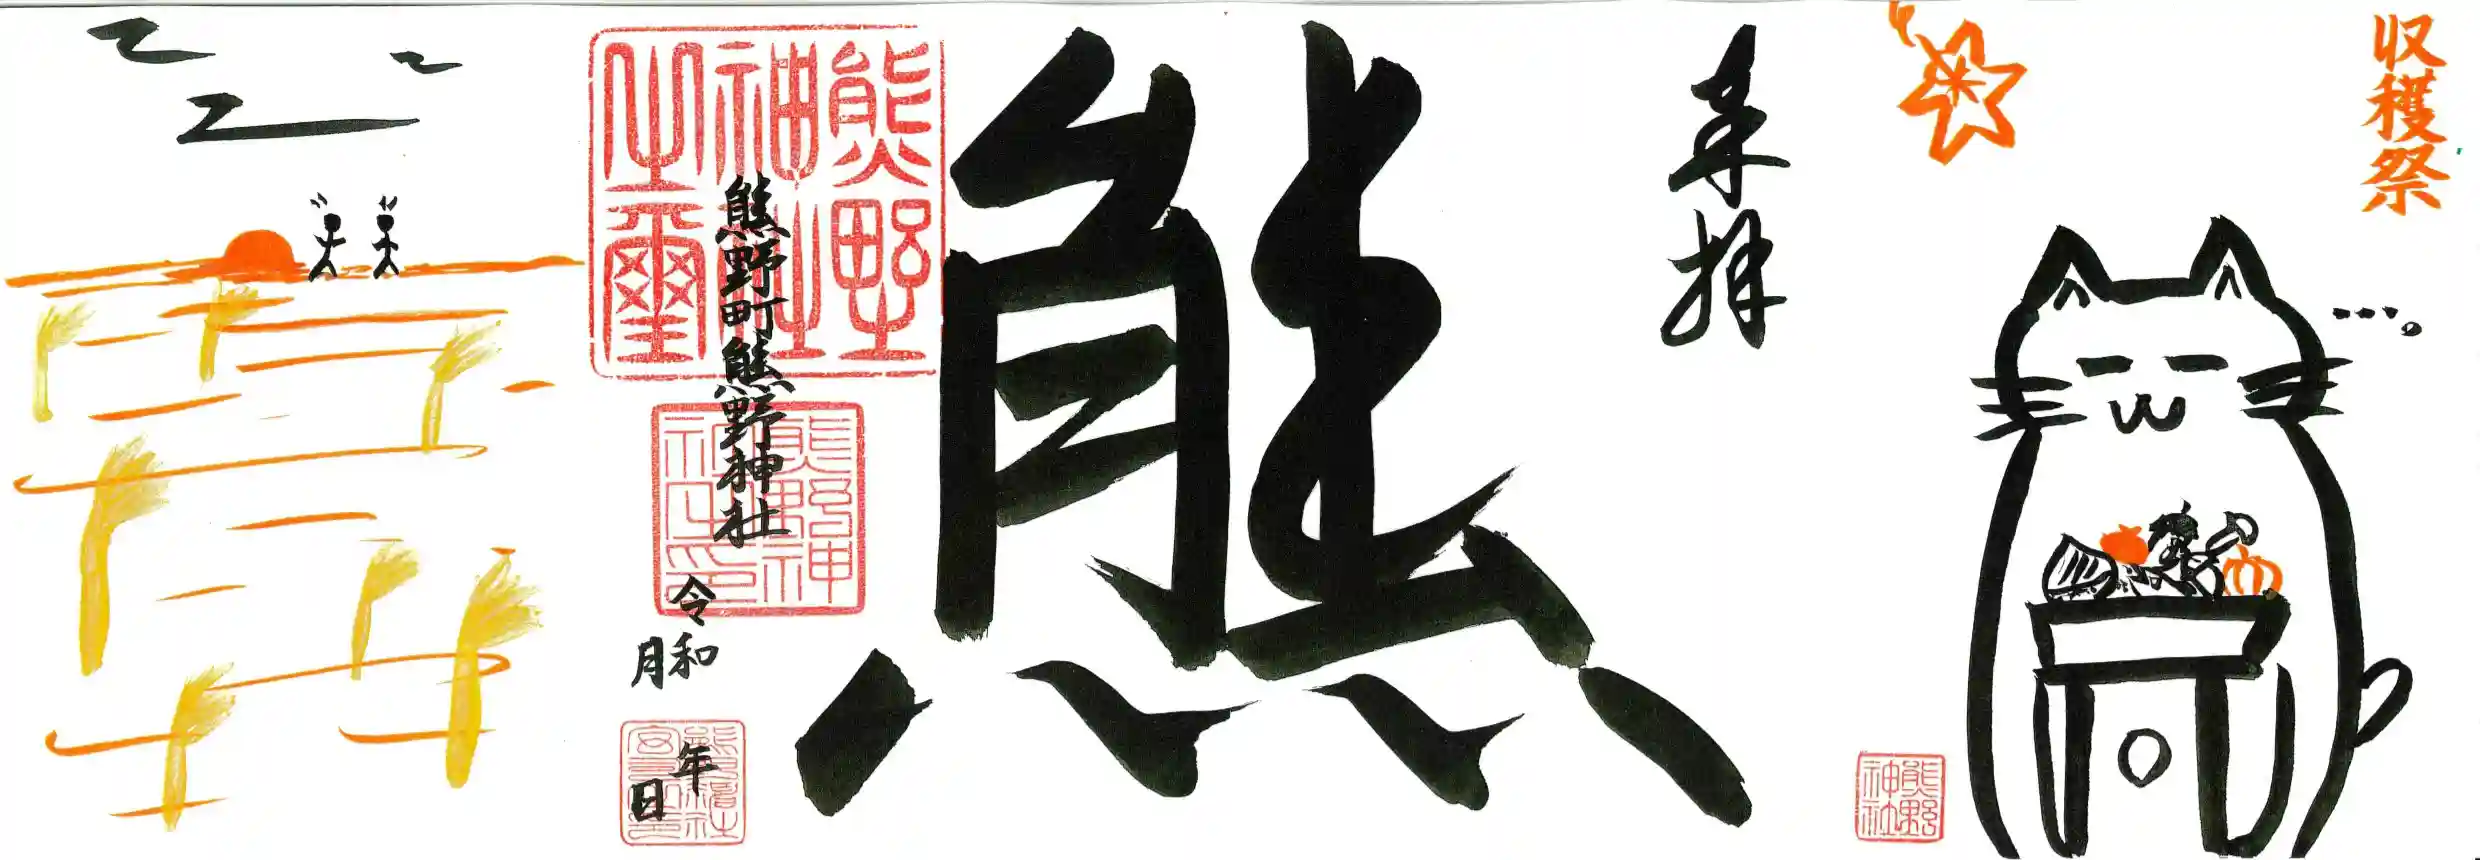 収穫祭
奉拝
熊
熊野町熊野神社
令和 年
月 日
熊野神社之璽
熊野神社之印
熊野神社